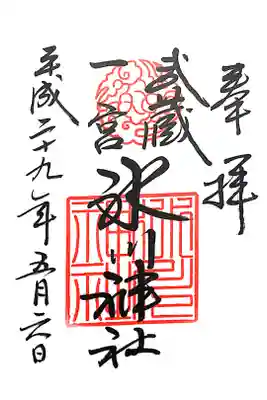 奉拝
武蔵
一宮
氷川神社
平成二十九年五月六日